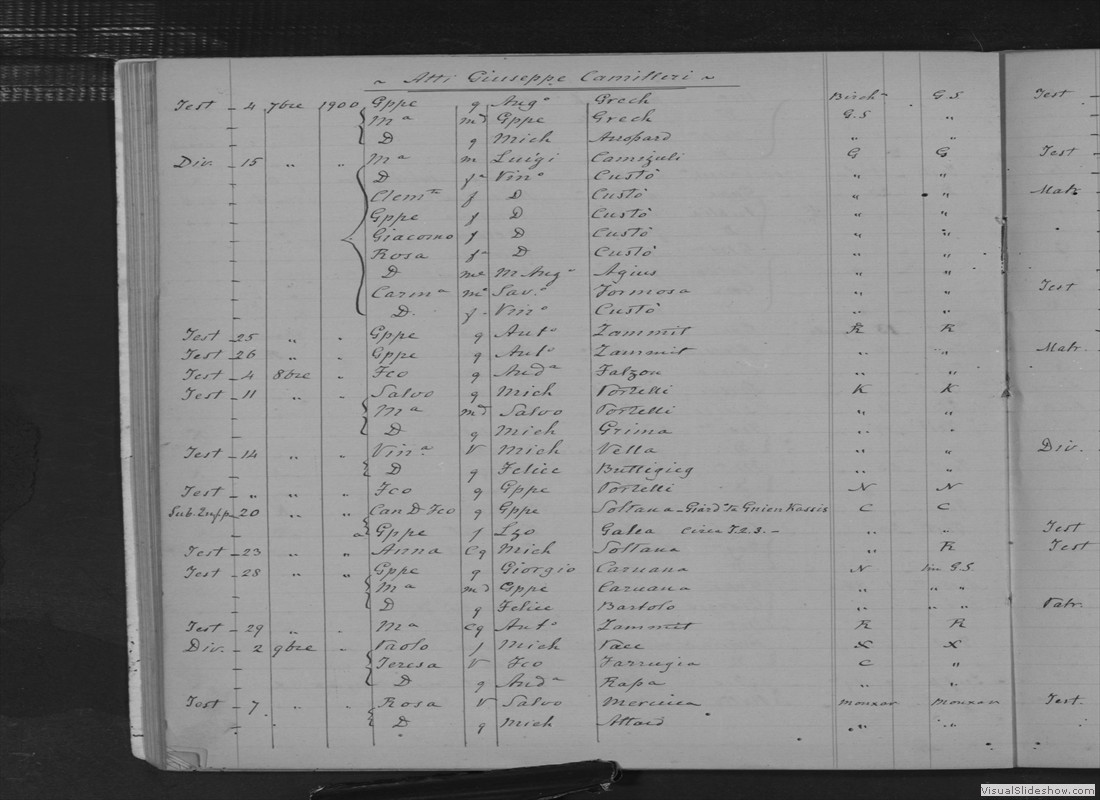 ~ Atti Giuseppe Camilleri ~
Test - 4 7bre 1900 Gppe g Ang° Grech Birch G.S Test
Mª md Gppe Grech G.S "
D g Mich " "
Div. - 15 " " Mª m Luigi G G Test
D fª Vin° Custò " "
Clem f D Custò " " Matr
Gppe f D Custò " "
Giacomo f D Custò " "
Rosa fª D Custò " "
D mª M Ang Agius " "
Carmª m Sav.° Formosa " " Test
D. f Vin° Custò " "
Test - 25 " " Gppe g Ant° Zammit K K
Test - 26 " " Gppe g Ant° Zammit " " Matr.
Test - 4 8bre " Fco g Andª Falzon " "
Test - 11 " " Salvo g Mich Portelli K K
Mª md Salvo Portelli " "
D g Mich Grima " "
Test - 14 " " Vinª V Mich Vella " " Div.
D g Felice Buttigieg " "
Test - " " " Fco g Gppe Portelli N N
Sub. - 20 " " Can D Fco g Gppe Soltana - Giard° Ta Gnien Kassis C C
a Gppe f Lzo Galea circa T.2.3. - " " Test
Test - 23 " " Anna Cg Mich Soltana " K Test
Test - 28 " " Gppe g Giorgio Caruana N G.S
Mª md Gppe Caruana " " "
D g Felice Bartolo " " " Patr.
Test - 29 " " Mª Cg Ant° Zammit K K
Div. - 2 9bre " Paolo f Mich Pace X X
Teresa V Fco Farrugia C "
D g Andª Rapa " "
Test - 7 " " Rosa V Salvo Mercieca Munxar Munxar Test.
D g Mich Attard " "
VisualSlideshow.com